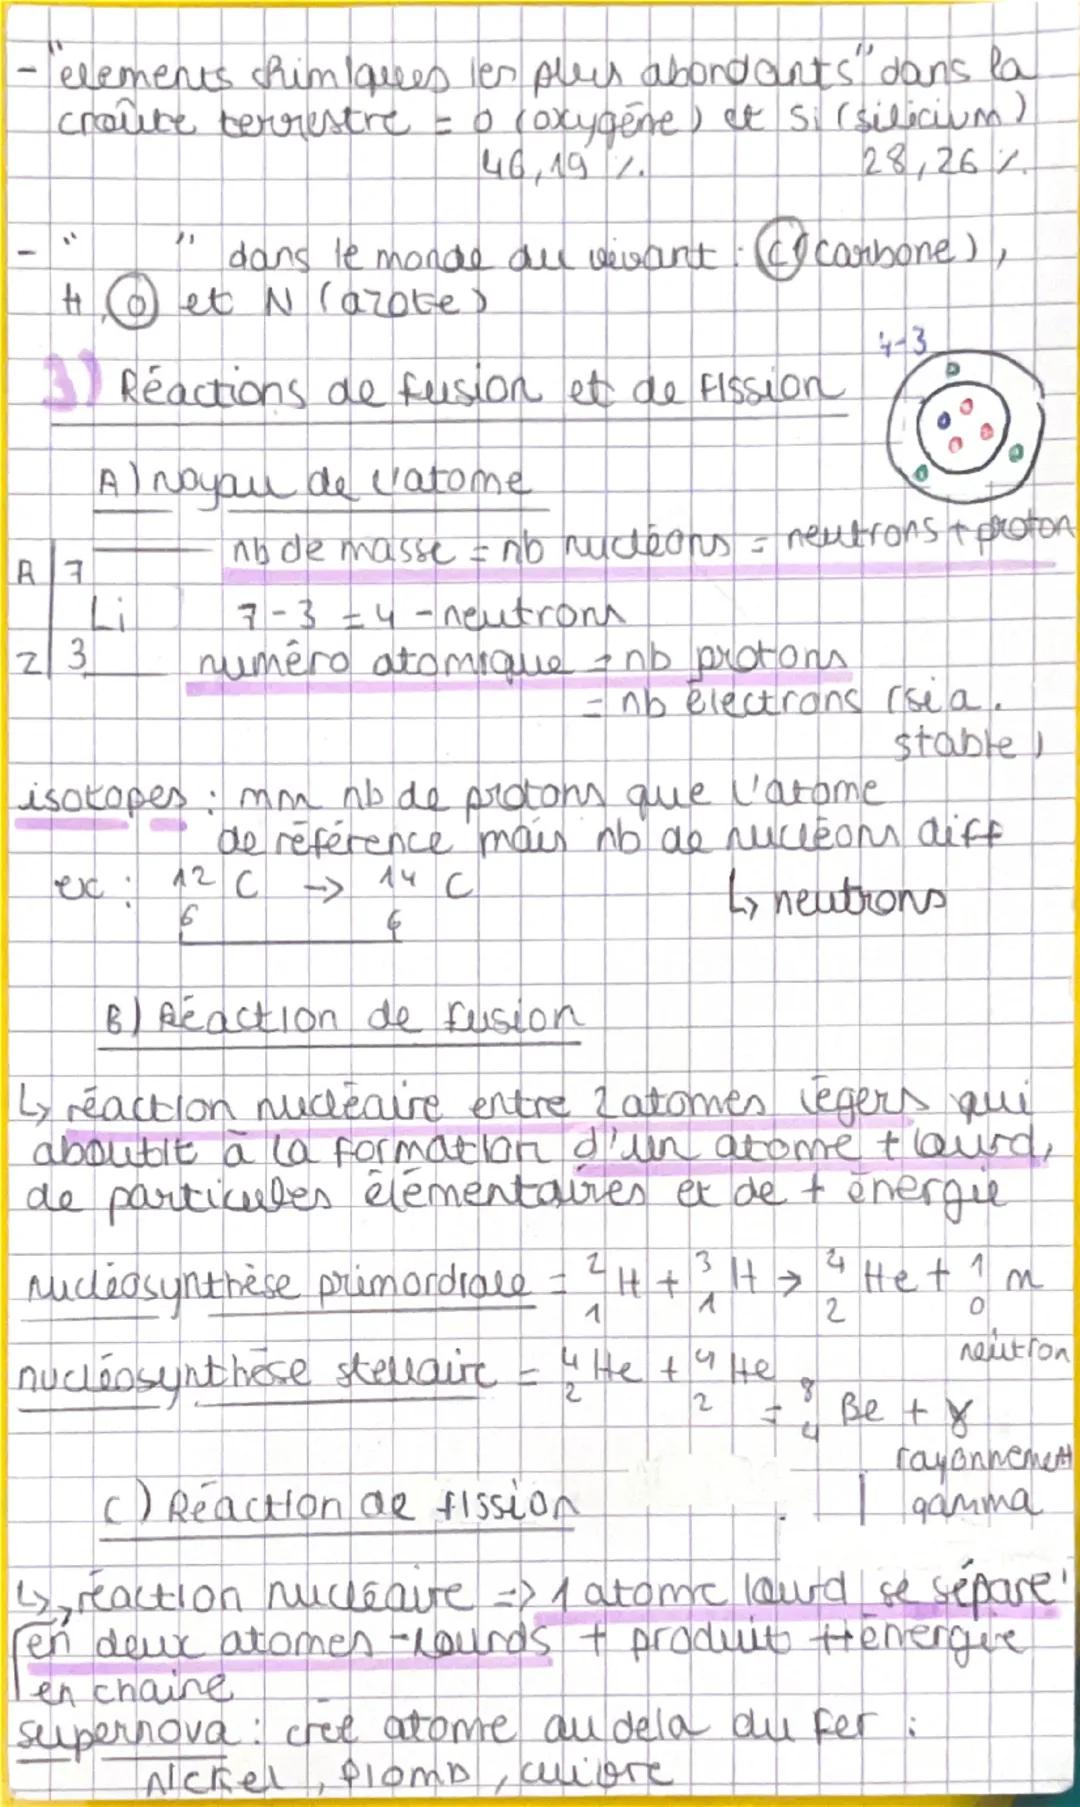 - "elements chimiques les plus abondants" dans la
croûte terrestre = O (oxygène) et Si (silicium)
46,19 % 28,26 %
- " " dans le monde du vivant : C (carbone),
H, O et N (azote)
4-3
3) Réactions de fusion et de fission
A) noyau de l'atome
nb de masse = nb nucléons = neutrons + proton
A 7
Li 7 - 3 = 4 - neutrons
Z 3 numéro atomique = nb protons
= nb électrons (si a.
stable)
isotopes : mm nb de protons que l'atome
de référence mais nb de nucléons diff
ex : 12 C → 14 C ↳ neutrons
6 6
B) Réaction de fusion
↳ réaction nucléaire entre 2 atomes légers qui
aboutit à la formation d'un atome + lourd,
de particules élémentaires et de + énergie
nucléosynthèse primordiale = ²₁H + ³₁H → ⁴₂He + ¹₀n
neutron
nucléosynthèse stellaire = ⁴₂He + ⁴₂He
= ⁸₄Be + γ
rayonnement
gamma
C) Réaction de fission
↳ réaction nucléaire => 1 atome lourd se sépare
en deux atomes - lourds + produit ++ énergie
en chaine
supernova : créé atome au dela du fer :
Nickel, plomb, cuivre